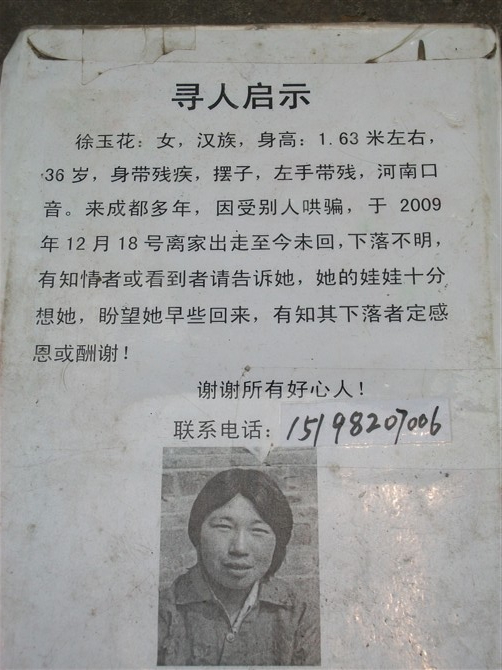 寻人启示
徐玉花：女，汉族，身高：1.63 米左右，
36 岁，身带残疾，摆子，左手带残，河南口
音。来成都多年，因受别人哄骗，于 2009
年 12 月 18 号离家出走至今未回，下落不明，
有知情者或看到者请告诉她，她的娃娃十分
想她，盼望她早些回来，有知其下落者定感
恩或酬谢！
谢谢所有好心人！
联系电话：15198207006